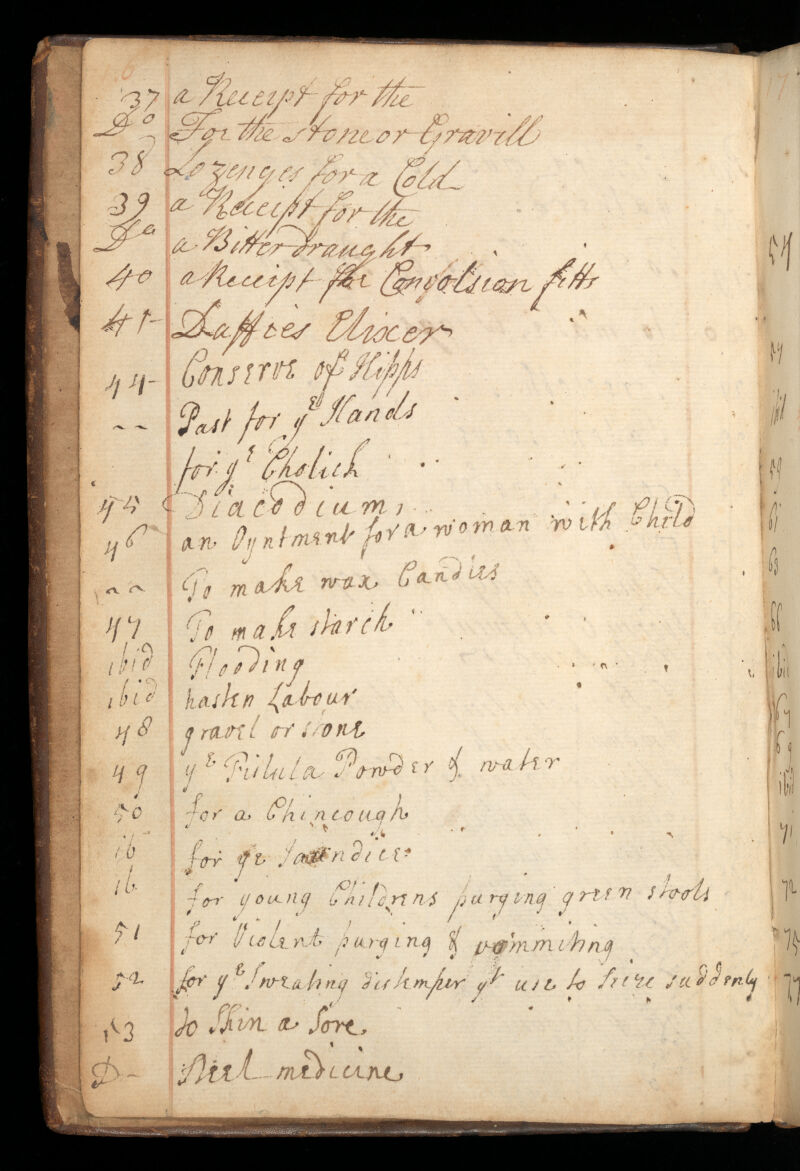 16
37 a Receipt for the
Do For the stone or Gravill
38 Lozenges for a Cold
39 a Receipt for the
Do a Bitter draught
40 a Receipt for Convolsion fitts
41 Daffies Elixer
44 Conserve of Hipps
~~ Past for yᵉ Hands
for yᵉ Cholick
45 Diacodium,
46 an Oyntment for a woman with Child
~~ To make wax Candles
47 To make starch
ibid Flooding
ibid hasten Labour
48 gravel or stone
49 yᵉ Fistula Powder & water
50 for a Chincough
ib for ye Jaundice
ib for young Childrens purging green stools
51 for Violent purging & vommiting
52 for yᵉ Sweating distemper yᵗ use to Seize suddenly
53 to Skin a Sore
D- Steel medicine
17
54
57
ibid
59
61
63
66
ibid
67
69
ibid
71
72
75
77